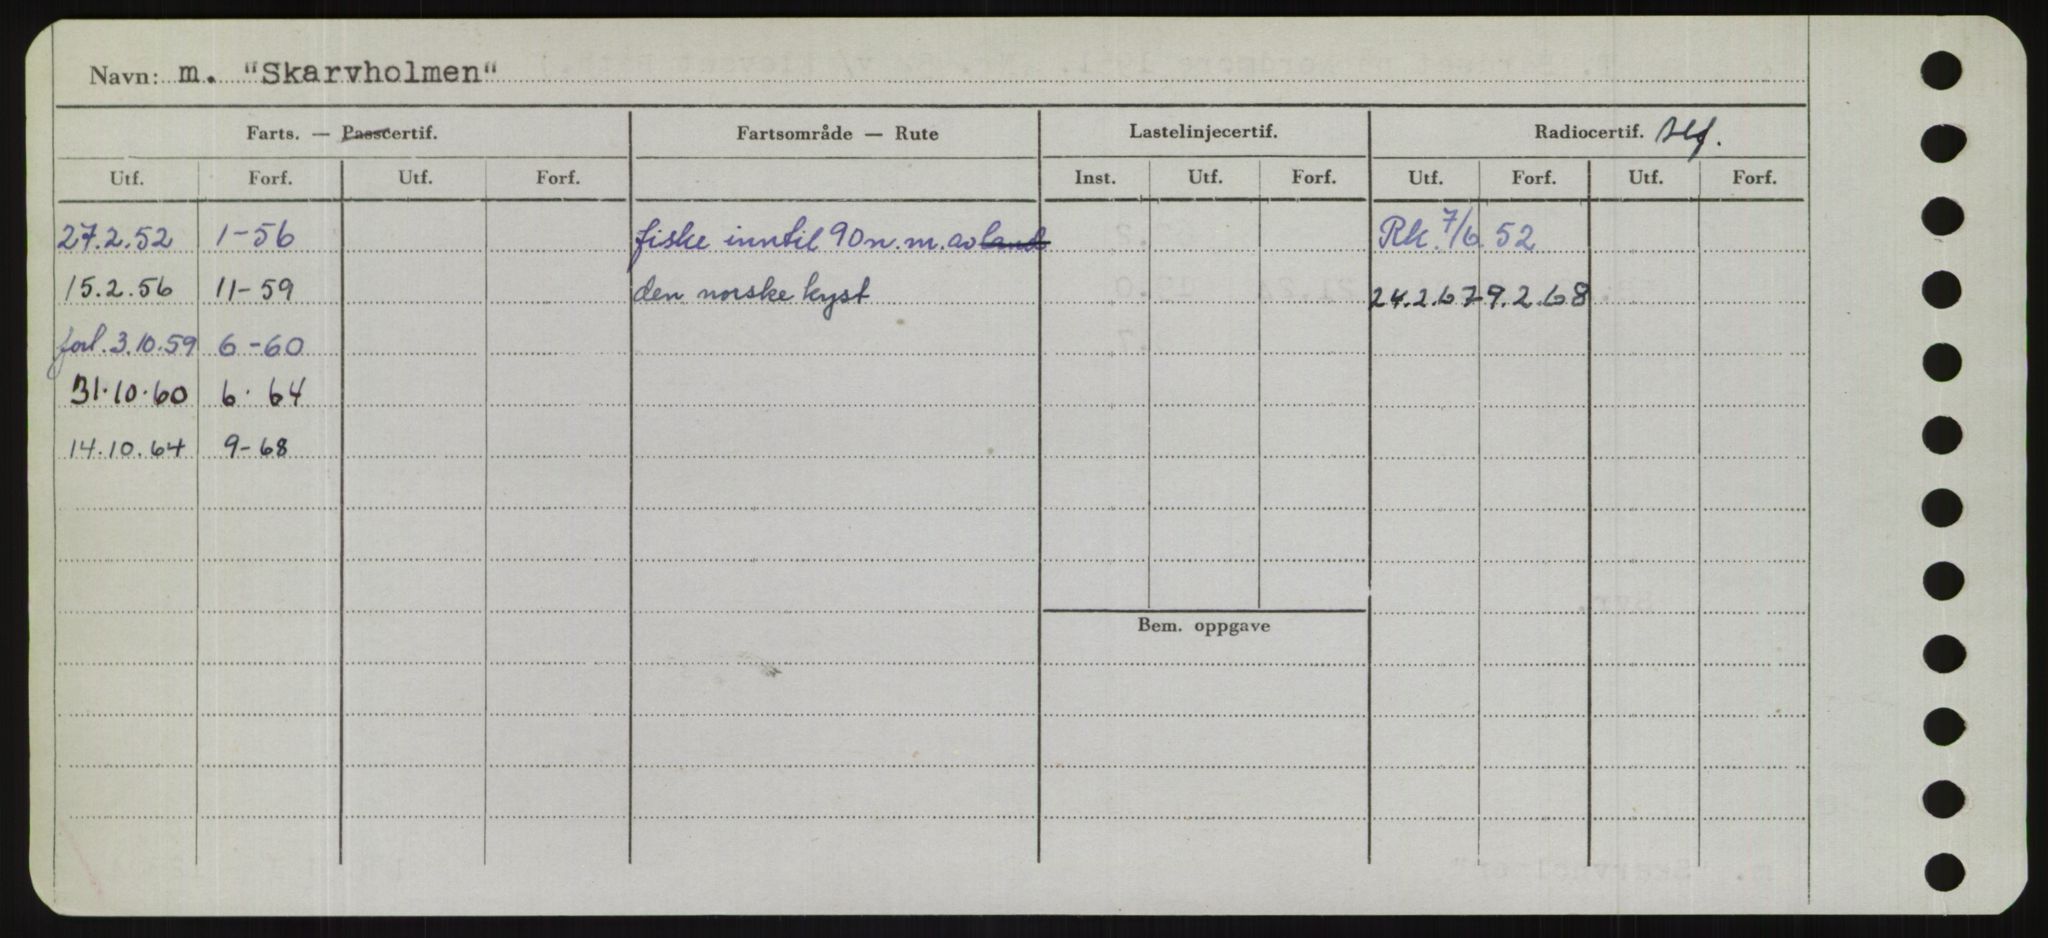 Navn: m. "Skarvholmen"
Farts. — Passcertif. Fartsområde — Rute Lastelinjecertif. Radiocertif. tlf.
Utf. Forf. Utf. Forf. Inst. Utf. Forf. Utf. Forf. Utf. Forf.
27.2.52 1-56 fiske inntil 90 n.m. av land Rk. 7/6 52
15.2.56 11-59 den norske kyst 24.2.67 9.2.68
forl. 3.10.59 6-60
31.10.60 6. 64
14.10.64 9-68
Bem. oppgave